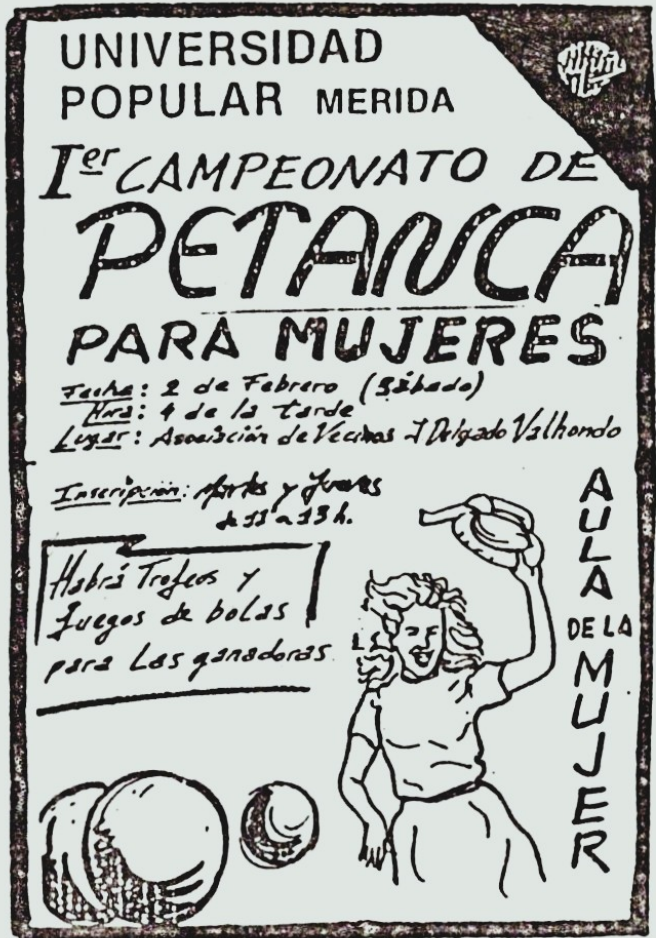 UNIVERSIDAD
POPULAR MERIDA
Ier CAMPEONATO DE
PETANCA
PARA MUJERES
Fecha: 2 de Febrero (Sábado)
Hora: 4 de la tarde
Lugar: Asociación de Vecinos J Delgado Valhondo
Inscripción: Martes y Jueves
de 11 a 13 h.
Habrá Trofeos y
Juegos de bolas
para Las ganadoras
AULA
DE LA
MUJER